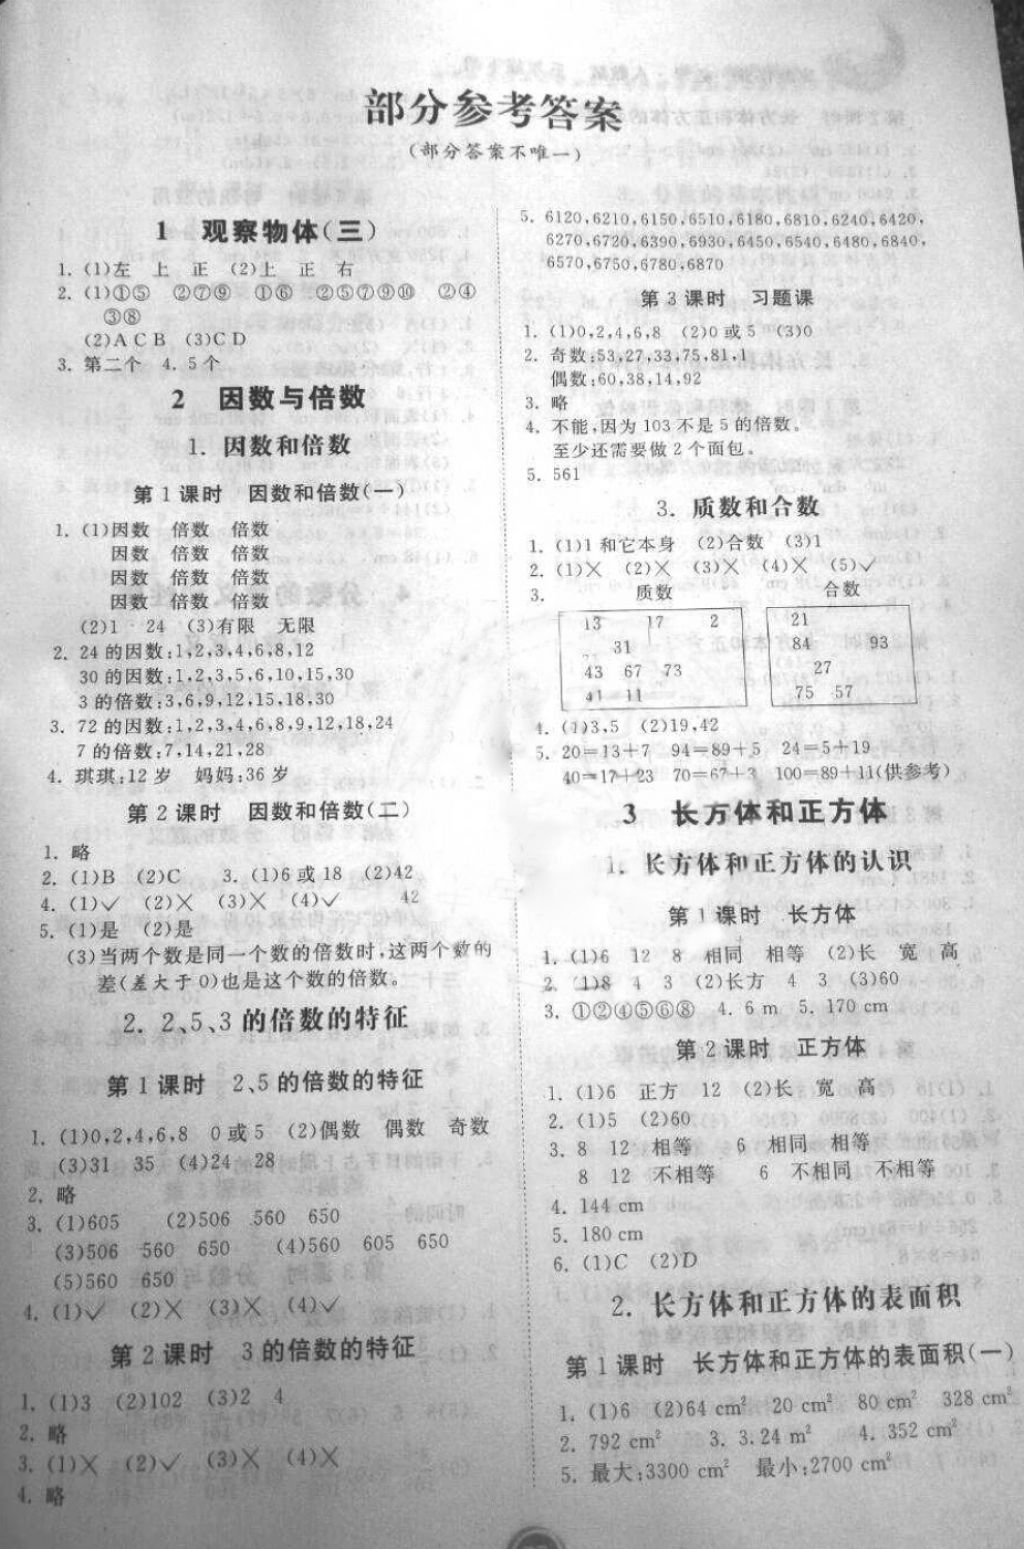 部分参考答案
(部分答案不唯一)
1 观察物体(三)
1. (1)左 上 正 (2)上 正 右
2. (1)①⑤ ②⑦⑨ ①⑥ ②⑤⑦⑨⑩ ②④
③⑧
(2)A C B (3)C D
3. 第二个 4. 5个
2 因数与倍数
1. 因数和倍数
第1课时 因数和倍数(一)
1. (1)因数 倍数 倍数
因数 倍数 倍数
因数 倍数 倍数
因数 倍数 倍数
(2)1 24 (3)有限 无限
2. 24的因数:1,2,3,4,6,8,12
30的因数:1,2,3,5,6,10,15,30
3的倍数:3,6,9,12,15,18,30
3. 72的因数:1,2,3,4,6,8,9,12,18,24
7的倍数:7,14,21,28
4. 琪琪:12岁 妈妈:36岁
第2课时 因数和倍数(二)
1. 略
2. (1)B (2)C 3. (1)6或18 (2)42
4. (1)✓ (2)× (3)× (4)✓ 42
5. (1)是 (2)是
(3)当两个数是同一个数的倍数时,这两个数的
差(差大于0)也是这个数的倍数。
2. 2、5、3的倍数的特征
第1课时 2、5的倍数的特征
1. (1)0,2,4,6,8 0或5 (2)偶数 偶数 奇数
(3)31 35 (4)24 28
2. 略
3. (1)605 (2)506 560 650
(3)506 560 650 (4)560 605 650
(5)560 650
4. (1)✓ (2)× (3)× (4)✓
第2课时 3的倍数的特征
1. (1)3 (2)102 (3)2 4
2. 略
3. (1)× (2)✓ (3)× (4)×
4. 略
5. 6120,6210,6150,6510,6180,6810,6240,6420,
6270,6720,6390,6930,6450,6540,6480,6840,
6570,6750,6780,6870
第3课时 习题课
1. (1)0,2,4,6,8 (2)0或5 (3)0
2. 奇数:53,27,33,75,81,1
偶数:60,38,14,92
3. 略
4. 不能,因为103不是5的倍数。
至少还需要做2个面包。
5. 561
3. 质数和合数
1. (1)1和它本身 (2)合数 (3)1
2. (1)× (2)× (3)× (4)× (5)✓
3. 质数 合数
13 17 2 21
31 84 93
43 67 73 27
41 11 75 57
4. (1)3,5 (2)19,42
5. 20=13+7 94=89+5 24=5+19
40=17+23 70=67+3 100=89+11(供参考)
3 长方体和正方体
1. 长方体和正方体的认识
第1课时 长方体
1. (1)6 12 8 相同 相等 (2)长 宽 高
2. (1)8 4 3 (2)长方 4 3 (3)60
3. ①②④⑤⑥⑧ 4. 6 m 5. 170 cm
第2课时 正方体
1. (1)6 正方 12 (2)长 宽 高
2. (1)5 (2)60
3. 8 12 相等 6 相同 相等
8 12 不相等 6 不相同 不相等
4. 144 cm
5. 180 cm
6. (1)C (2)D
2. 长方体和正方体的表面积
第1课时 长方体和正方体的表面积(一)
1. (1)6 (2)64 cm² 20 cm² 80 cm² 328 cm²
2. 792 cm² 3. 3.24 m² 4. 352 cm²
5. 最大:3300 cm² 最小:2700 cm²